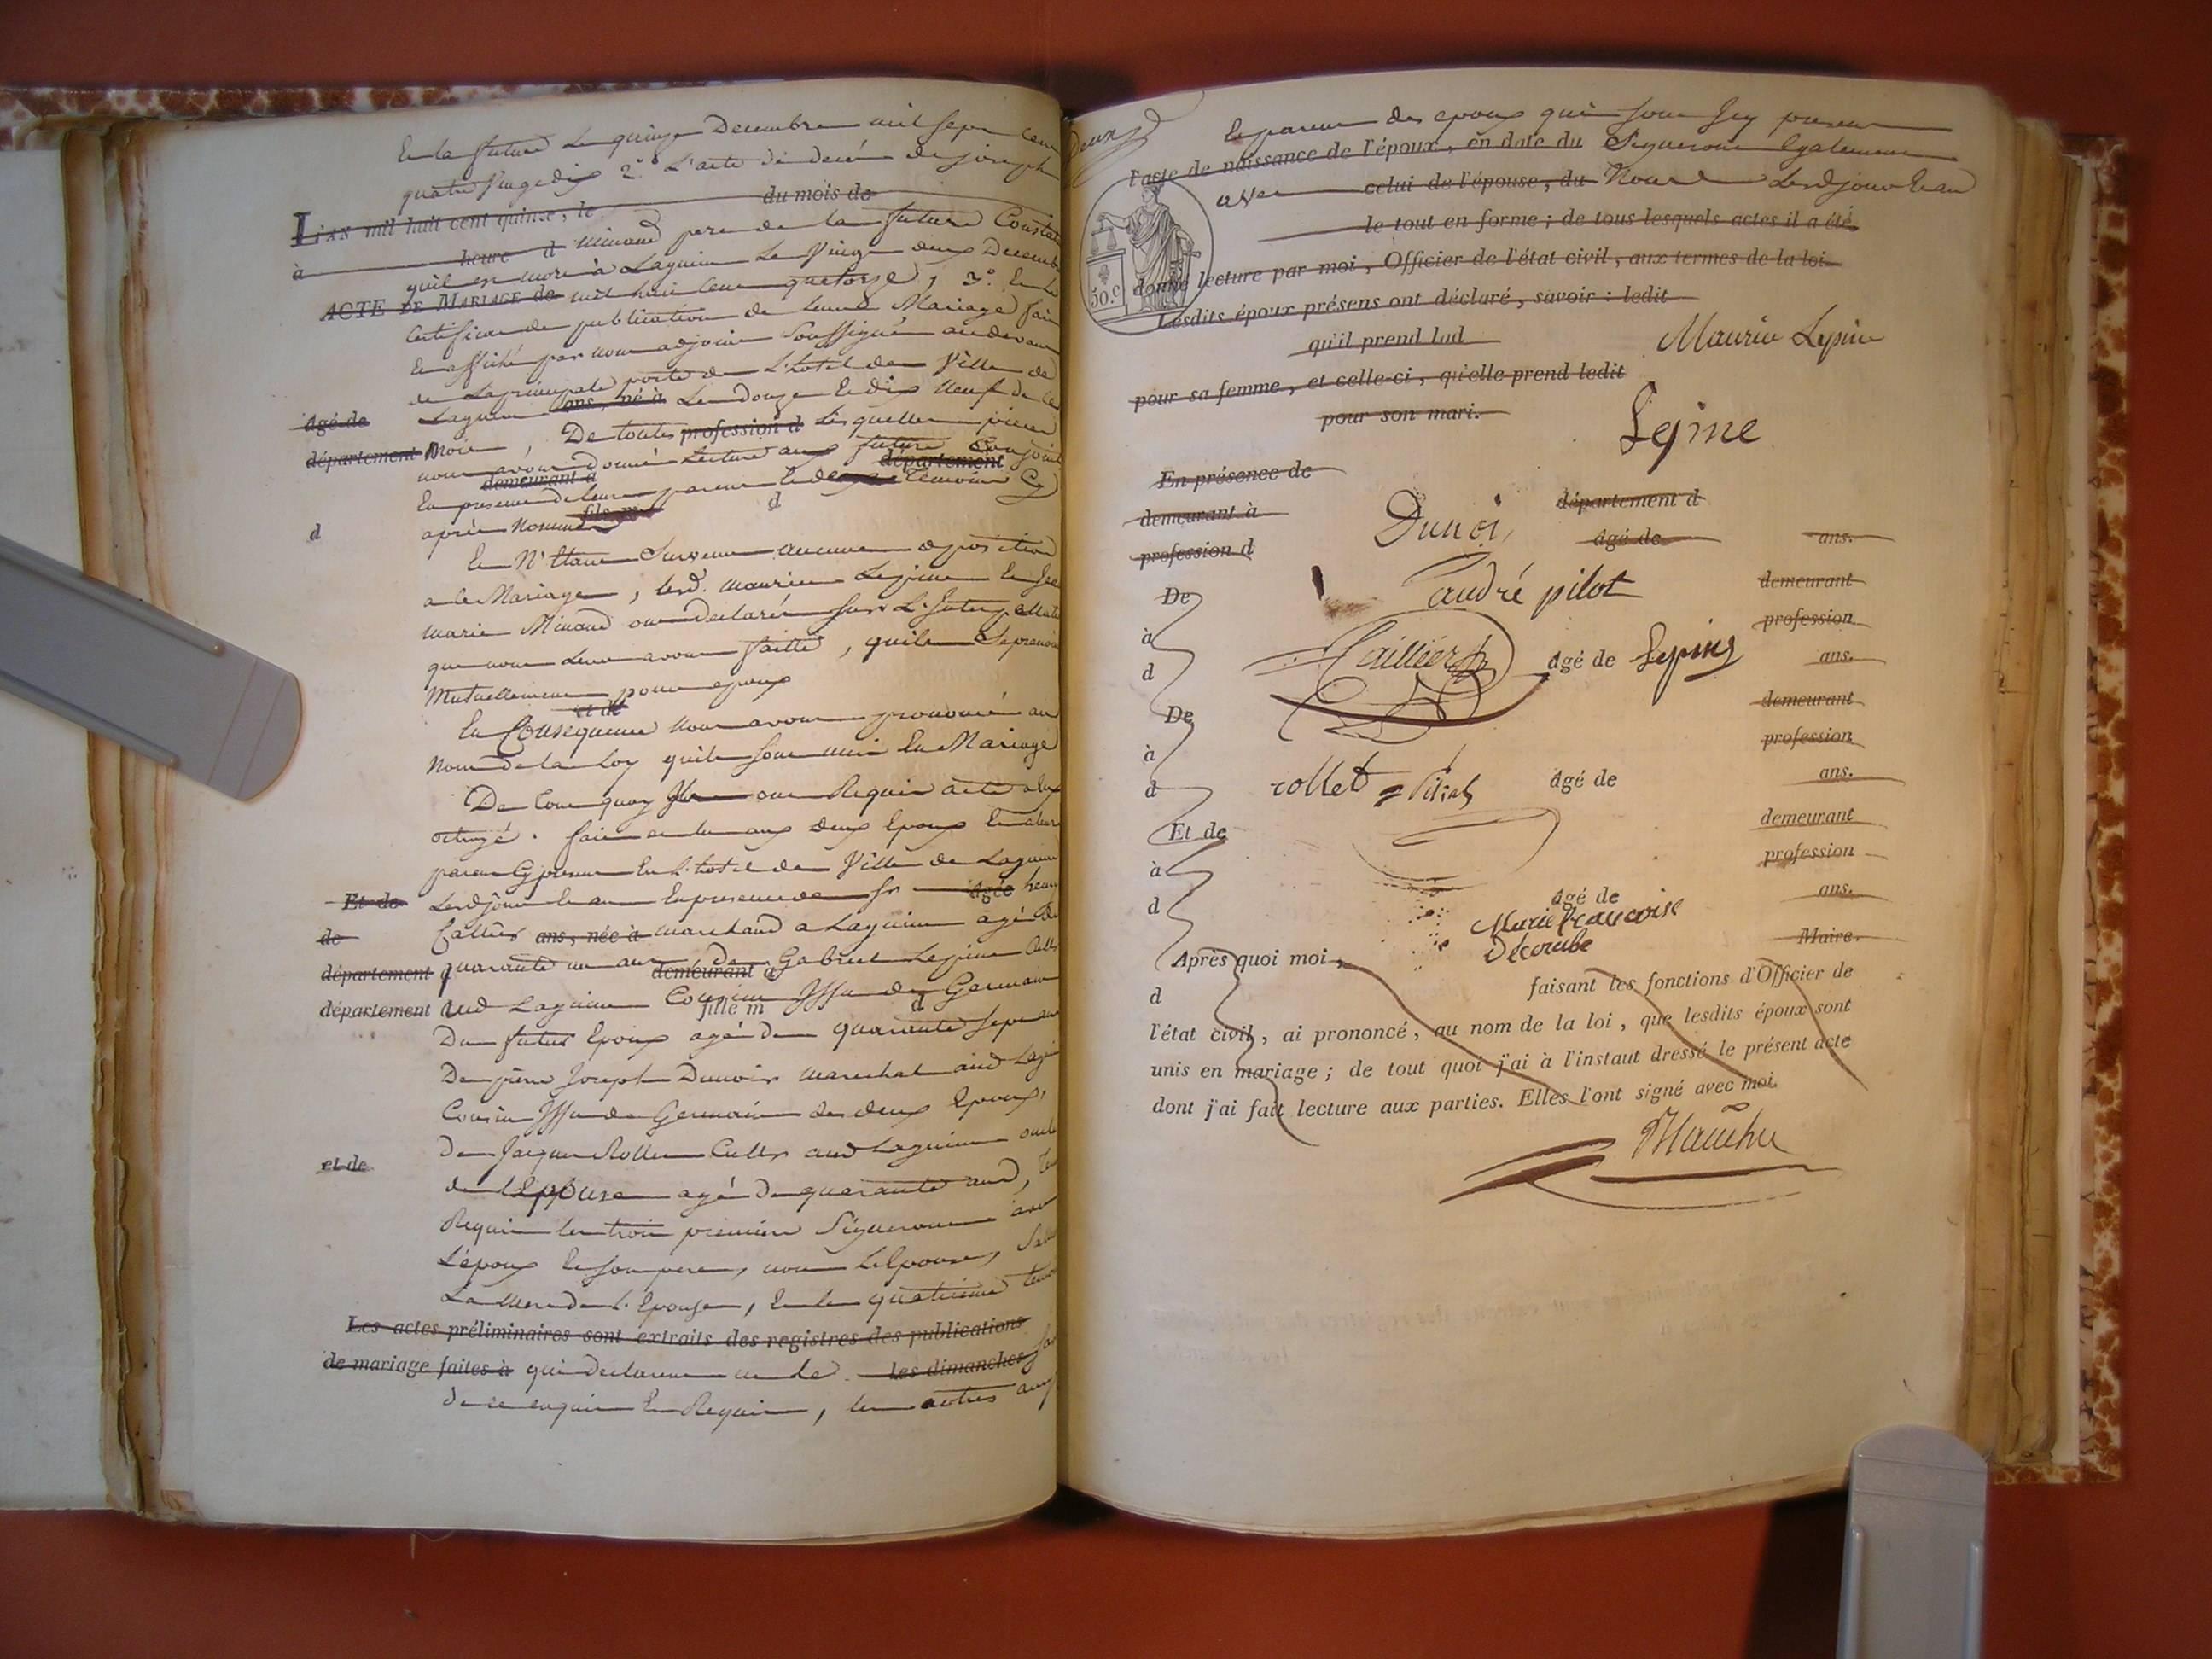 En la future Le quinze Decembre mil sept cent
quatre vingt dix 2.° L'acte de decés de joseph
L'AN mil huit cent quinze, le du mois de
à heure d Minaud pere de la future Constatant
qu'il est mort à Lagnieu Le Vingt deux Decembre
ACTE DE MARIAGE de mil huit cent quatorze, 3.° Et le
Certificat de publication de leur Mariage fait
Et affiché par nous adjoint Soussigné au devant
de La principale porte de L'hotel de Ville de
Lagnieu ans, né à Le Douze Et dix Neuf de ce
âgé de
département Mois, De toutes profession d Lesquelles pieces
nous avons donné Lecture aux futurs Conjoints
demeurant à département
En presence de leurs parens Et des Temoins Cy
après Nommés fils m d
d
Et N'Etant Survenue aucune opposition
a ce Mariage, lesd. Maurice Lepine Et
Marie Minaud ont declaré sur L'Interpellation
que nous Leur avons faitte, qu'ils Se prenoient
Mutuellement pour epoux
et de
En Consequence Nous avons prononcé au
Nom de la Loy qu'ils sont unis En Mariage
De Tout quoy Ils ont Requis acte a Eux
octroyé. fait et lu aux deux Epoux Et a leurs
parens Cy presens En L'hotel de Ville de Lagnieu
Et de Lesd jour Et an En presence de Sr âgée
de Callier ans, née à Marchand a Lagnieu agé de
département quarante un ans De Gabriel Lepine
demeurant à
département aud Lagnieu Cousin Issu de Germain
fille m d
Du futur Epoux agé de quarante sept ans
De pierre Joseph Dunoir Marechal aud
Cousin Issu de Germain des deux Epoux,
De Jacques Rollet Cultr aud Lagnieu oncle
et de
de L'Epouse agé de quarante ans,
Requis les trois premiers Signeront avec
L'époux Et son pere, non L'Epouse,
La Mere de L'Epouse, Et le quatrieme temoin
Les actes préliminaires sont extraits des registres des publications
de mariage faites à qui declarent ne le les dimanches
de ce enquis Et Requis, les autres
deux
Les parens des epoux qui sont Icy presens
l'acte de naissance de l'époux, en date du Signeront Egalement
avec celui de l'épouse, du Nous Lesd jour Et an
le tout en forme; de tous lesquels actes il a été
50.c donné lecture par moi, Officier de l'état civil, aux termes de la loi.
Lesdits époux présens ont déclaré, savoir : ledit
qu'il prend lad Maurice Lepine
pour sa femme, et celle-ci, qu'elle prend ledit
pour son mari. Lepine
En présence de
demeurant à Dunoi, département d
profession d âgé de ans.
De andré pilot demeurant
à profession
d Caillier âgé de Lepine ans.
De demeurant
à profession
d rollet = âgé de ans.
Et de demeurant
à profession
d âgé de ans.
Marie francoise
Decombe
Après quoi moi, Maire.
d faisant les fonctions d'Officier de
l'état civil, ai prononcé, au nom de la loi, que lesdits époux sont
unis en mariage; de tout quoi j'ai à l'instaut dressé le présent acte
dont j'ai fait lecture aux parties. Elles l'ont signé avec moi.